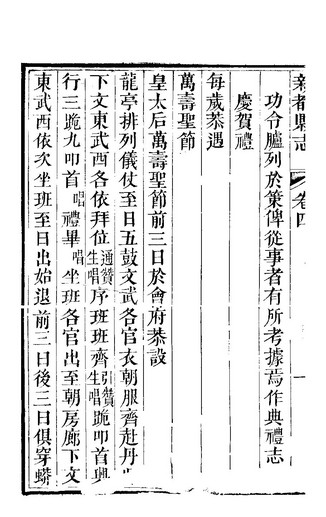 新都縣志
卷四
一
功令臚列於策俾從事者有所考據焉作典禮志
慶賀禮
每歲恭遇
萬壽聖節
皇太后萬壽聖節前三日於會府恭設
龍亭排列儀仗至日五鼓文武各官衣朝服齊赴丹
下文東武西各依拜位通贊生唱序班班齊引贊生唱跪叩首興
行三跪九叩首唱禮畢唱坐班各官出至朝房廊下文
東武西依次坐班至日出始退前三日後三日俱穿蟒